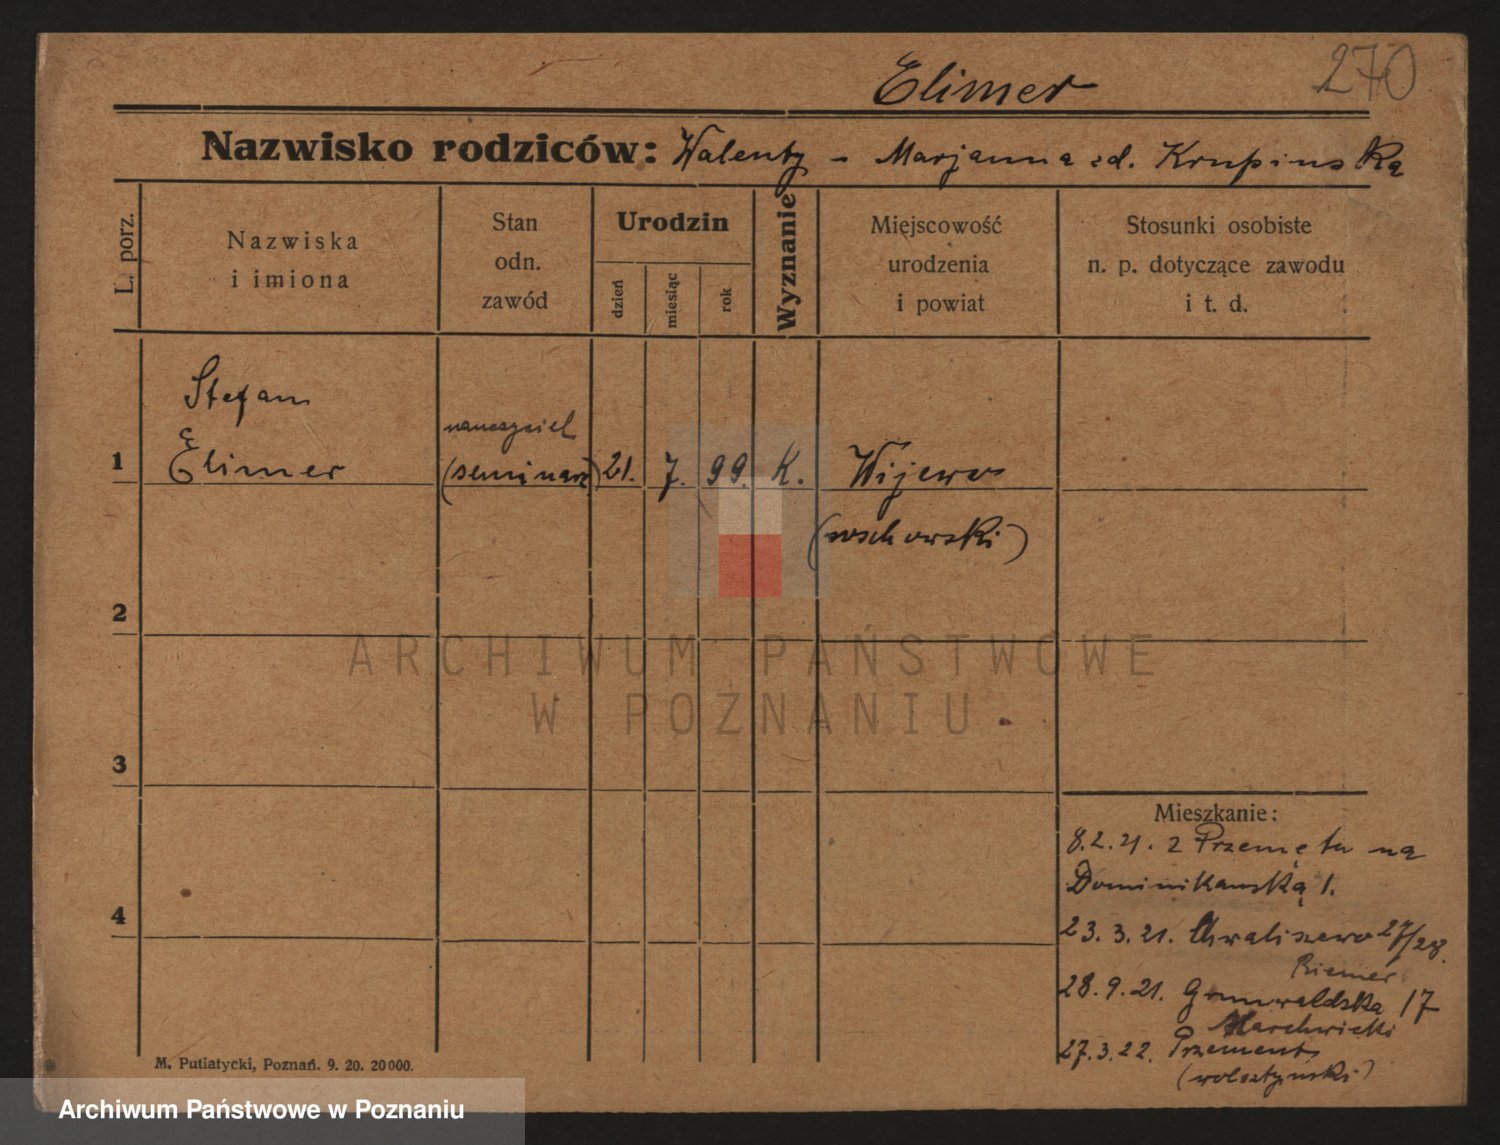 Elimer
270
Nazwisko rodziców: Walenty - Marjanna zd. Krupinska
L. porz.
Nazwiska
i imiona
Stan
odn.
zawód
Urodzin
dzień
miesiąc
rok
Wyznanie
Miejscowość
urodzenia
i powiat
Stosunki osobiste
n. p. dotyczące zawodu
i t. d.
Stefan
nauczyciel
1 Elimer (seminarz) 21. 7. 99. K. Wijewo
(wschowski)
2
ARCHIWUM PAŃSTWOWE
W POZNANIU
3
Mieszkanie:
8.2.21. z Przemętu na
Dominikańską 1.
4
23.3.21. Chwaliszewo 27/28.
Riemer
28.9.21. Grunwaldzka 17
Marchwicki
27.3.22. Przement
(wolsztyński)
M. Putiatycki, Poznań. 9. 20. 20000.
Archiwum Państwowe w Poznaniu